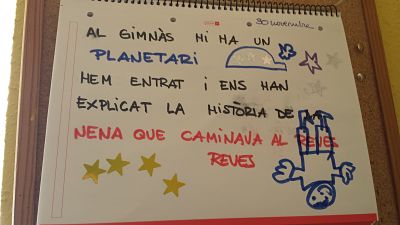 30 novembre
AL GIMNÀS HI HA UN
PLANETARI
HEM ENTRAT I ENS HAN
EXPLICAT LA HISTÒRIA DE
NENA QUE CAMINAVA AL REVES
REVES